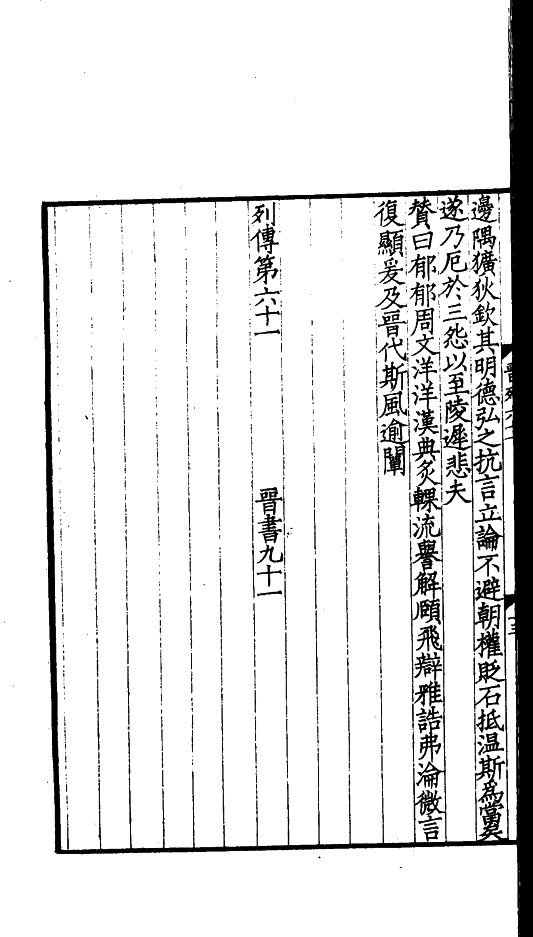 邊隅獷狄欽其明德弘之抗言立論不避朝權貶石抵温斯為黨矣
遂乃厄於三怨以至陵遲悲夫
賛曰郁郁周文洋洋漢典炙輠流譽解頤飛辯雅誥弗淪微言
復顯爰及晉代斯風逾闡
列傳第六十一 晉書九十一